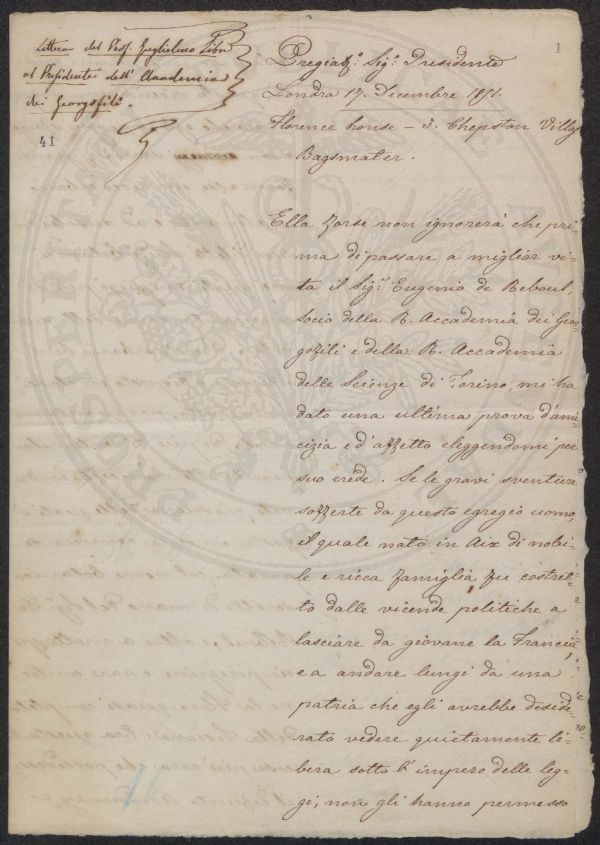 Lettera del Prof. Guglielmo Libri
al Presidente dell' Accademia
dei Georgofili.
41
1
Pregiat.º Sig.r Presidente
Londra 17. Dicembre 1851.
Florence house – 3. Chepston Villas
Bagsmater.
Ella forse non ignorerà che pri=
ma di passare a miglior vi=
ta il Sig.r Eugenio de Reboul,
socio della R. Accademia dei Geor=
gofili e della R. Accademia
delle Scienze di Torino, mi ha
dato una ultima prova d'ami=
cizia e d'affetto eleggendomi per
suo erede. Se le gravi sventure
sofferte da questo egregio uomo,
il quale nato in Aix di nobi=
le e ricca famiglia fu costret=
to dalle vicende politiche a
lasciare da giovane la Francia,
e a andare lungi da una
patria che egli avrebbe deside=
rato vedere quietamente li=
bera sotto l'impero delle leg=
gi, non gli hanno permesso